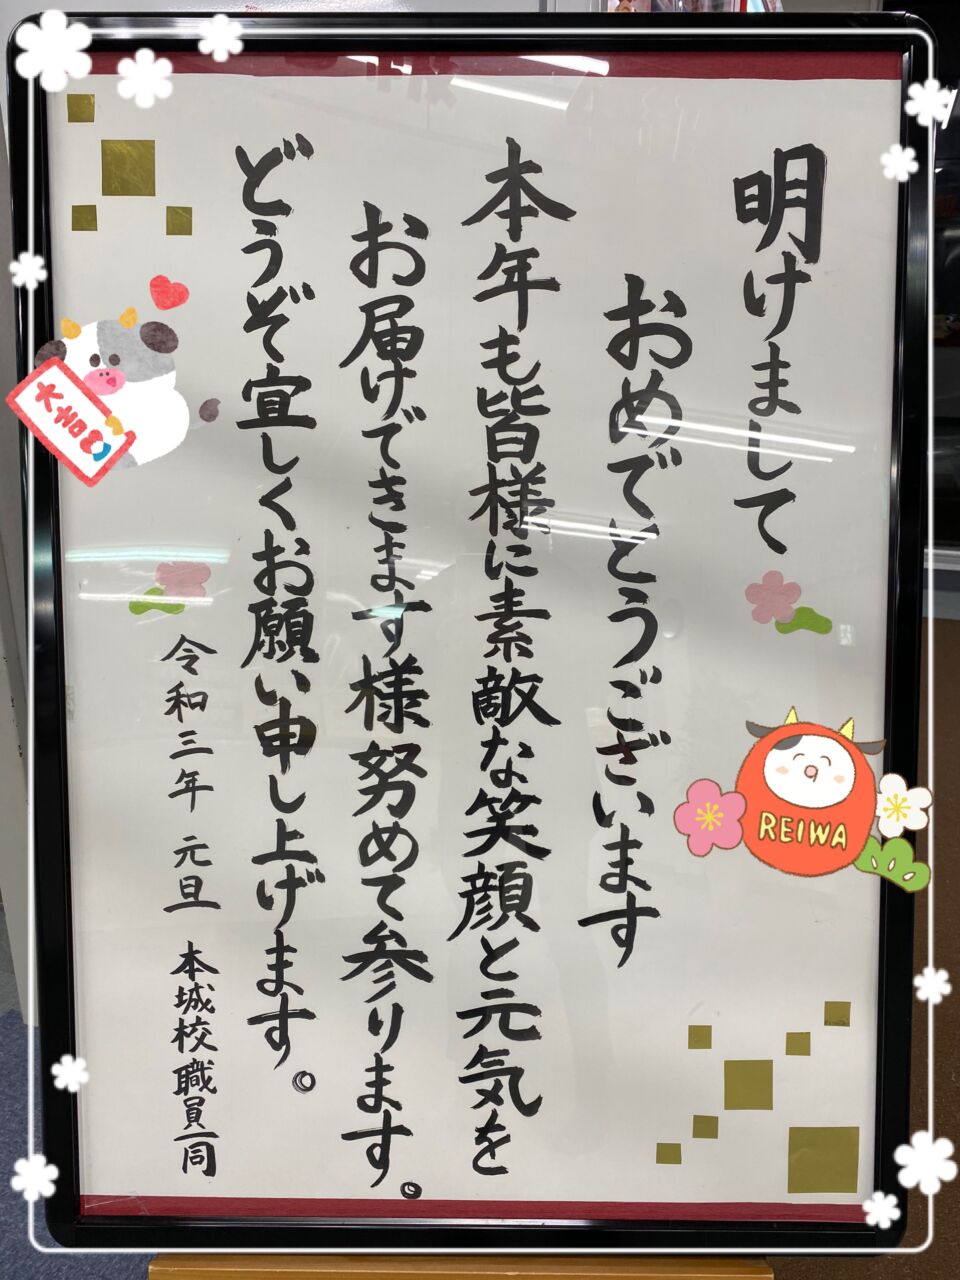 明けまして
おめでとうございます
本年も皆様に素敵な笑顔と元気を
お届けできます様努めて参ります。
どうぞ宜しくお願い申し上げます。
令和三年 元旦 本城校職員一同
大吉
REIWA